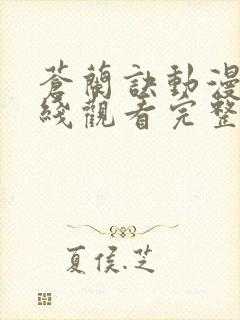 蒼蘭訣動漫
綫觀看完整
夏侯.芝